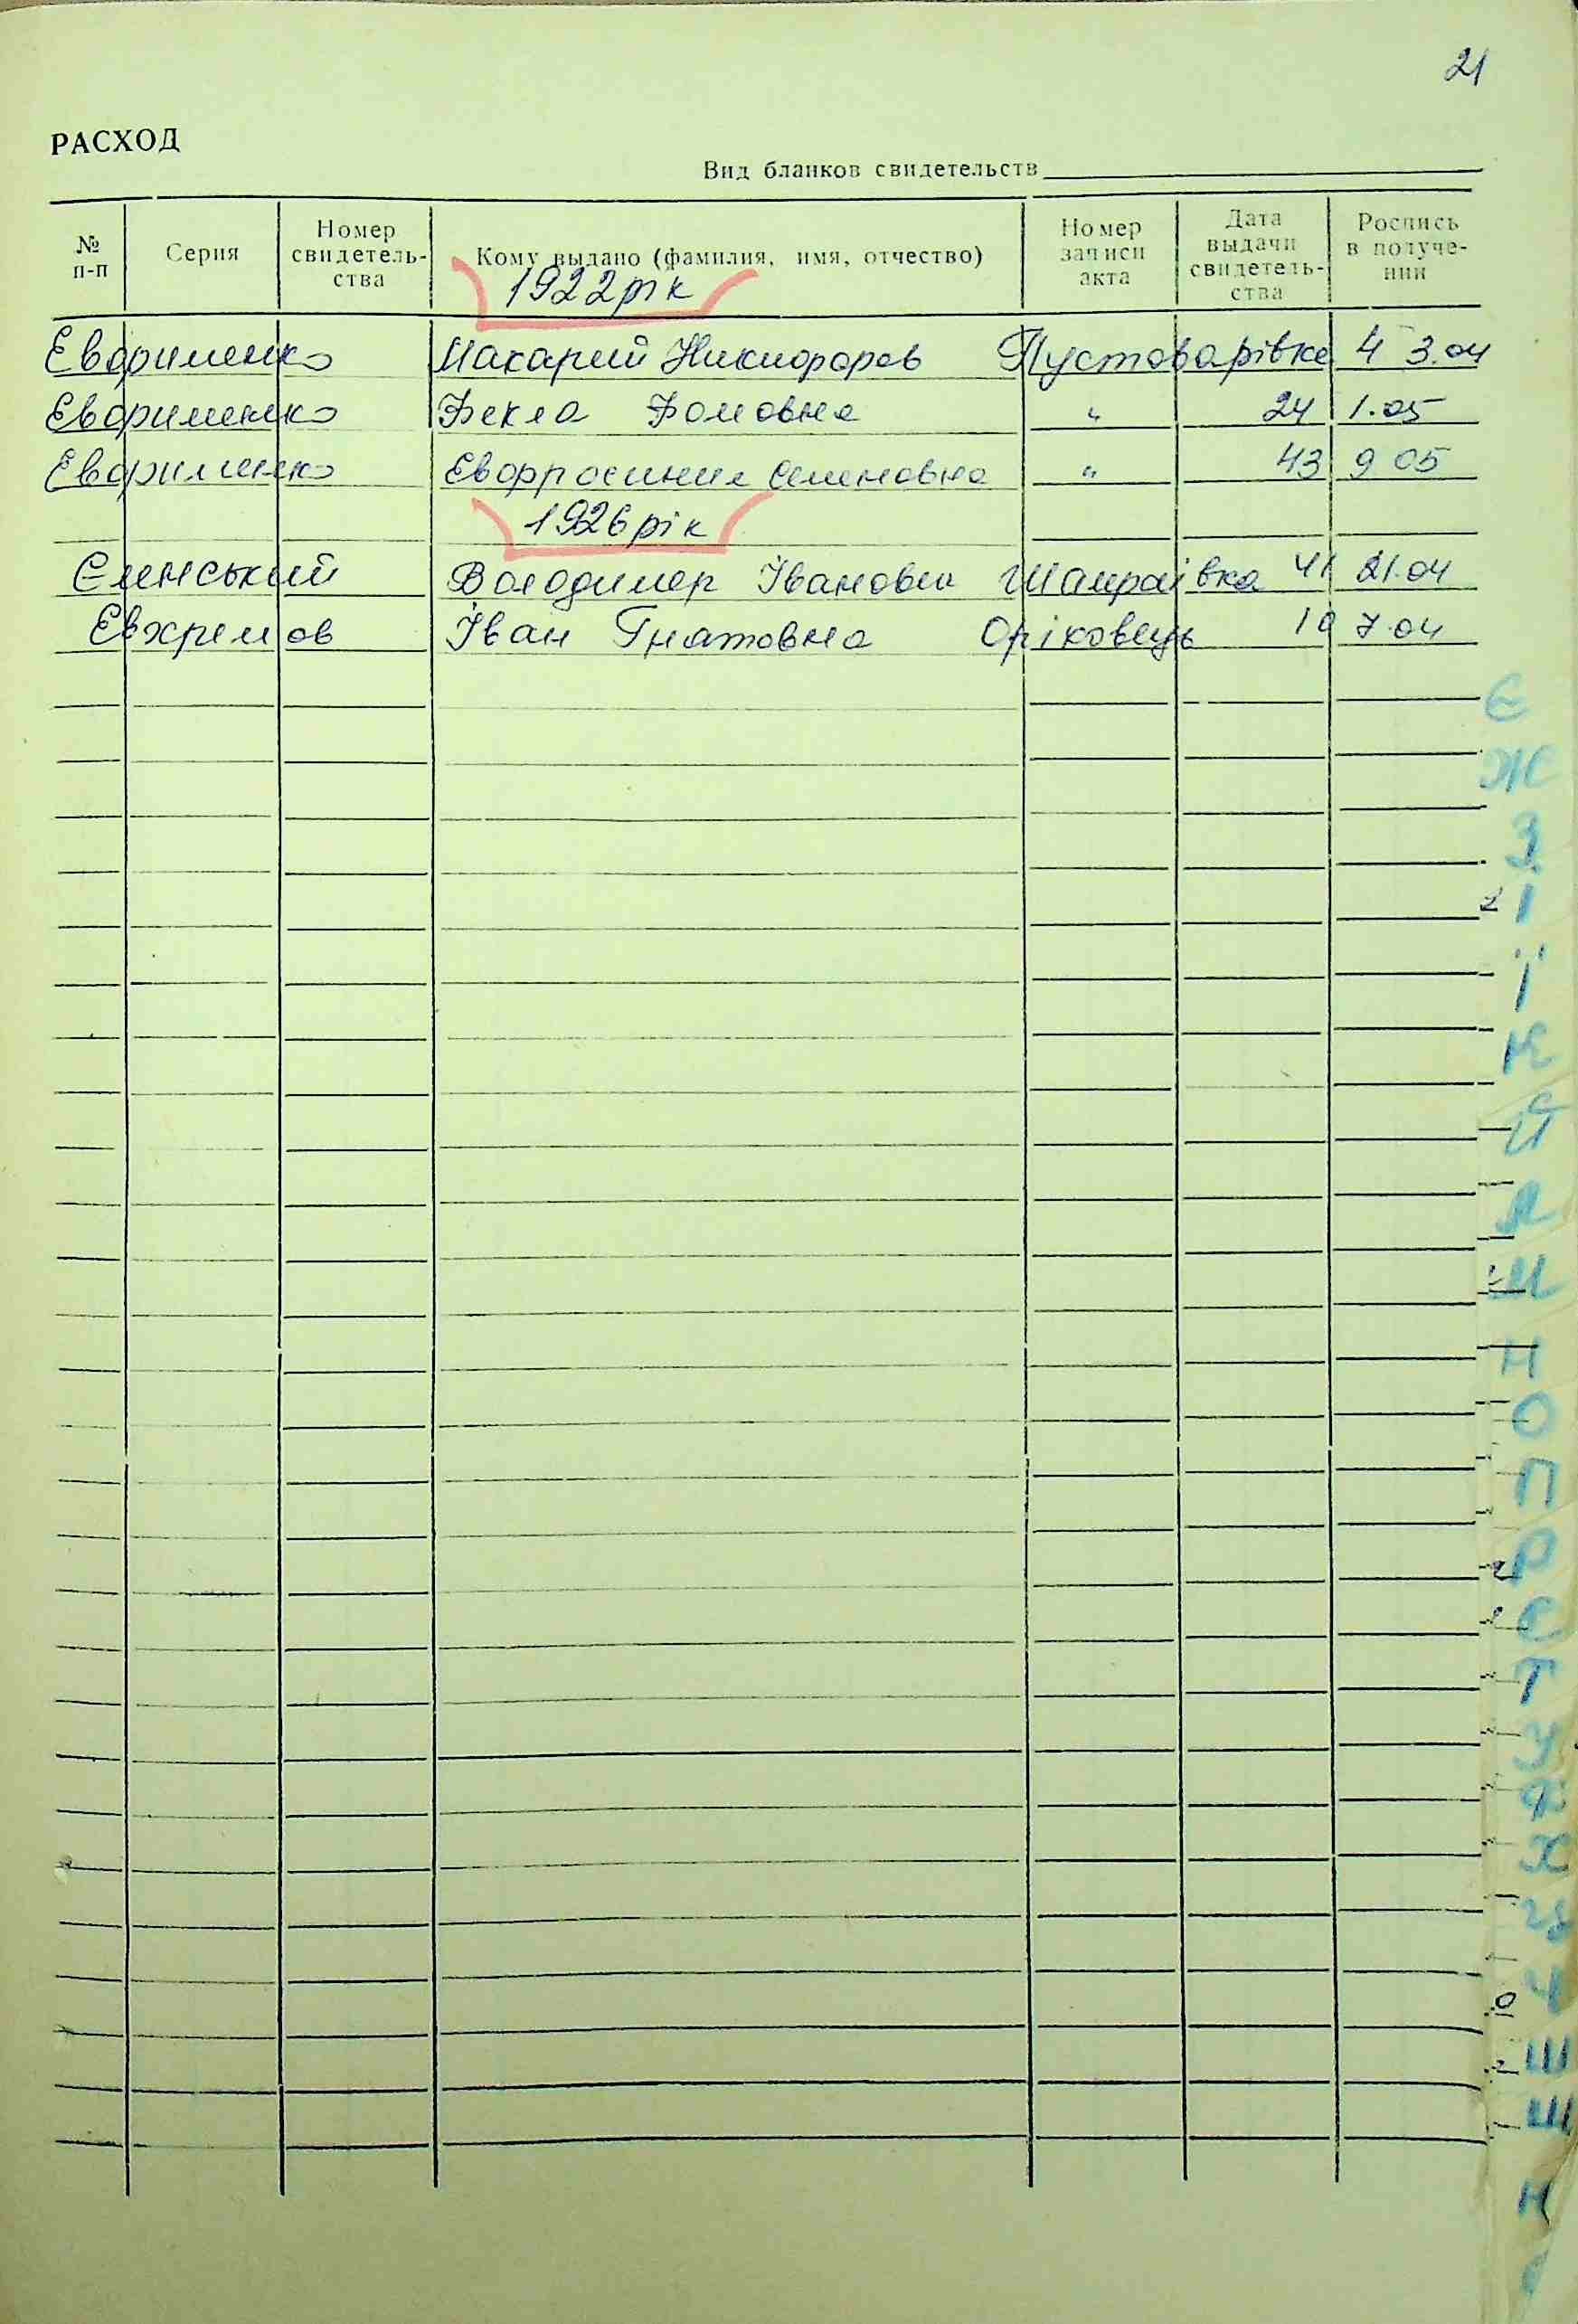 21
РАСХОД
Вид бланков свидетельств
№ п-п Серия Номер свидетель-ства Кому выдано (фамилия, имя, отчество) Номер записи акта Дата выдачи свидетель-ства Роспись в получе-нии
1922 рік
Евфрименко Макарий Никифоров Пустоварівка 4 3.04
Евфрименко Фекла Фомовна " 24 1.05
Евфрименко Евфросиния Семеновна " 43 9 05
1926 рік
Єленський Володимер Івановна Шамраївка 41 21.04
Евхремов Іван Гнатовна Оріховець 10 7.04
Є
Ж
З
І
Ї
К
Й
Л
М
Н
О
П
Р
С
Т
У
Ф
Х
Ц
Ч
Ш
Щ